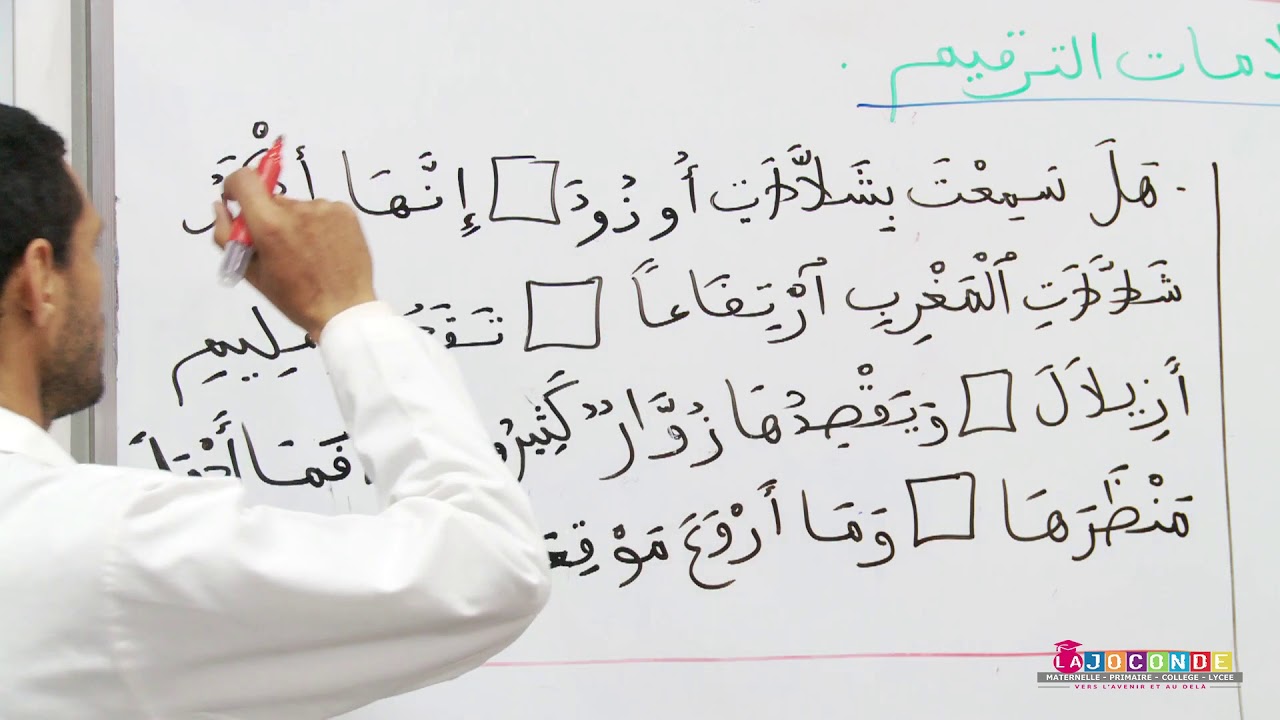 الترقيم .
. هَلَ سَمِعْتَ بِشَلاَّلاَتِ أُوزُودَ □ إِنَّهَا
شَلاَّلاَتِ ٱلْمَغْرِبِ ٱرْتِفَاعاً □ بِإِقْلِيمِ
أَزِيلاَلَ □ وَيَقْصِدُهَا زُوَّارٌ فَمَا
مَنْظَرَهَا □ وَمَا أَرْوَعَ
LAJOCONDE
MATERNELLE - PRIMAIRE - COLLEGE - LYCEE
VERS L'AVENIR ET AU DELÀ